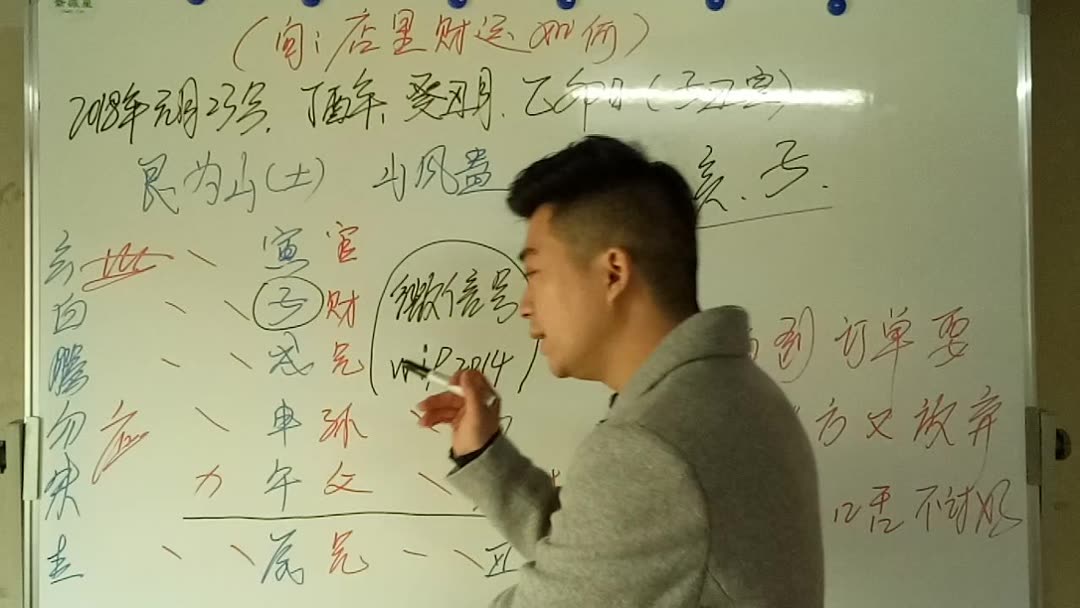 （问：店里财运如何）
2018年元月23号，丁酉年，癸丑月，乙卯日（子丑空）
艮为山（土） 山风蛊
亥、子.
玄 世 寅 官
白 子 财
微信号
腾 戌 兄
vip2014
到订单要
勾 应 申 孙
方又放弃
朱 午 父
口舌不讨好
辰 兄 丑